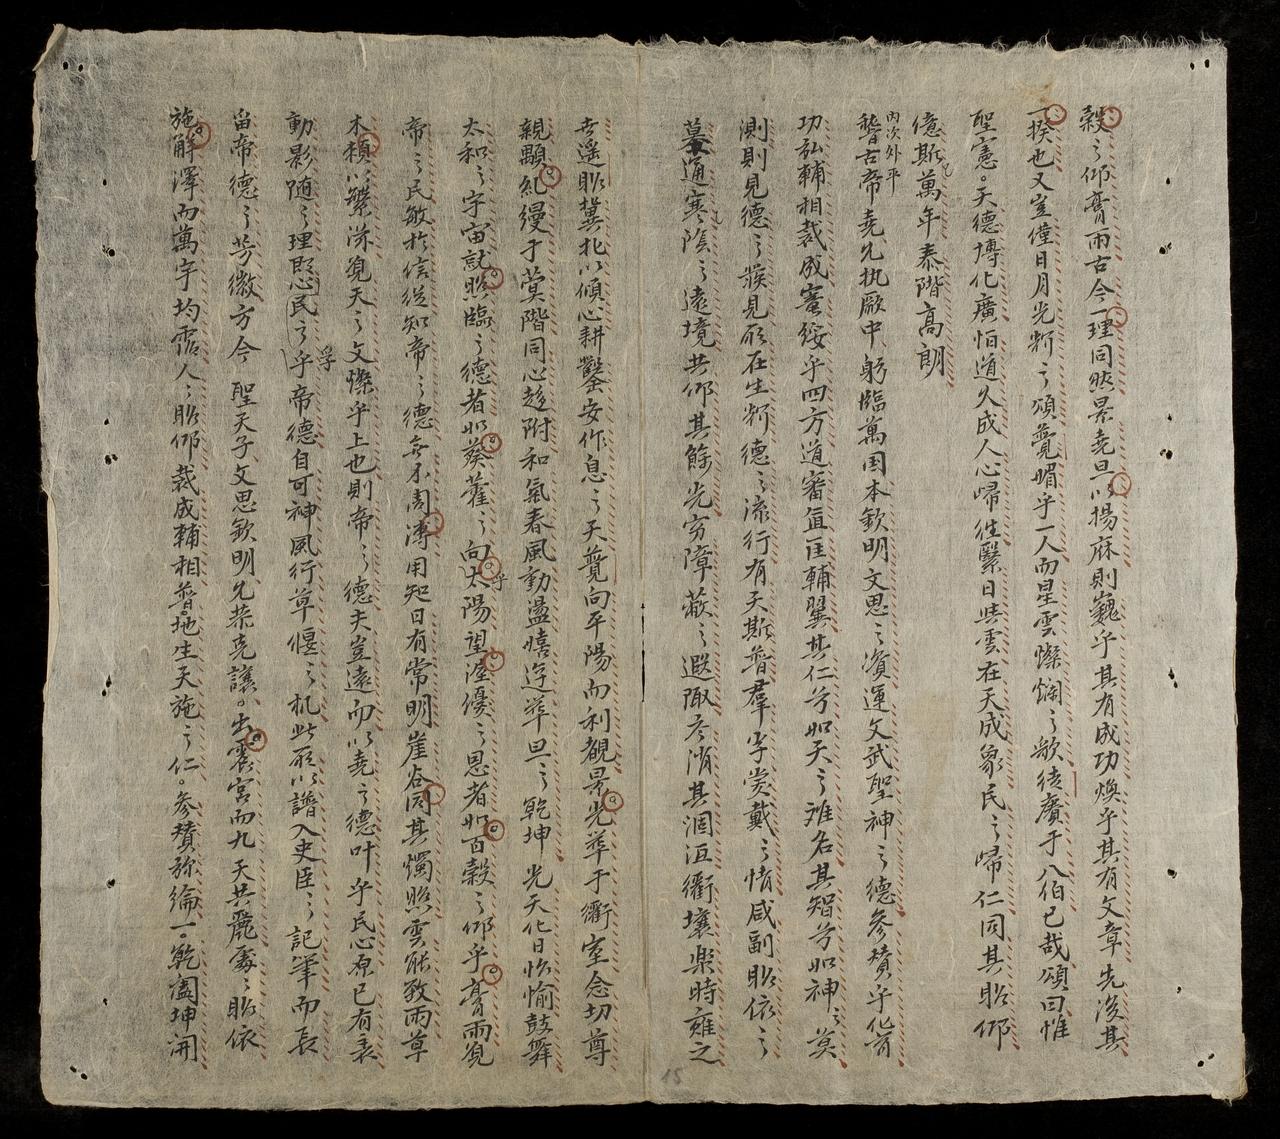 穀〻仰膏雨古今一理同然杲堯旦以揚麻則巍乎其有成功煥乎其有文章先後其
一揆也又豈僅日月光斬〻頌薨媚乎一人而星雲燦爛〻歌徒賡于八伯已哉頌曰惟
聖憲天德博化廣怕道久成人心歸徃繄日與雲在天成象民〻歸仁同其瞻仰
億斯萬年泰階高朗
内次外平
稽古帝堯允执厥中躬臨萬国本欽明文思〻資運文武聖神〻德參賛乎化育
功弘輔相裁成奠綏乎四方道審宜匡輔翼其仁兮如天〻难名其智兮如神〻莫
測則見德〻 見所在生 德〻流行有天斯普羣乎 戴〻情咸副瞻依〻
墓通寒陰〻遠境共仰其餘光穷障蔽〻遐陬尽消其涸沍衢壤楽時雍之
世遥瞻冀北以傾心耕鑿安作息〻天覽向平陽而利覩杲光萃于衢室念切尊
親顯糺縵于蓂階同心趍附和氣春風動盪嬉 旦〻乾坤光天化日怡愉鼓舞
太和〻宇宙就照臨〻德者如葵藿〻向太陽望渥優〻恩者如百穀〻仰乎膏雨覓
孚
帝〻民敏於信從知帝〻德合不周溥用知日有常明崖谷同其燭照雲能致雨草
木頼以繁滋覓天〻文燦乎上也則帝〻德夫豈遠而以堯〻德叶乎民心原已有表
動影随〻理 民〻乎帝德自可神風行草偃〻机此所以譜入史臣〻記筆而長
孚
留帝德〻芳徽方今 聖天子文思欽明允恭克讓出震宮而九天共麗處〻瞻依
施解澤而萬宇均霑人〻瞻仰裁成輔相普地生天施〻仁參賛弥綸一乾闔坤開
15